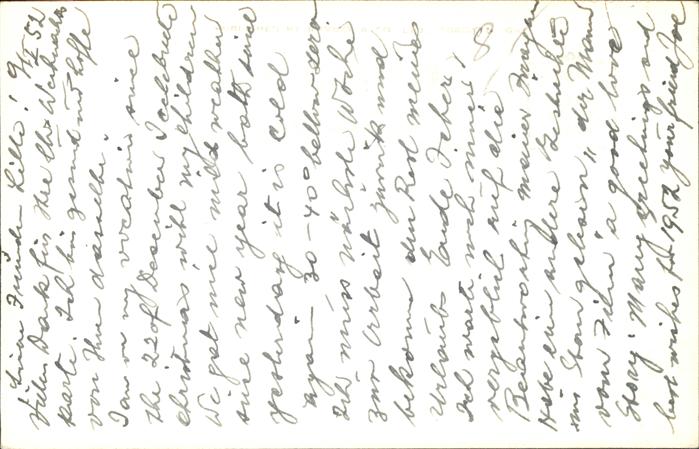 Liebe Freundin Lilli! 9/I 52
Vielen Dank für Ihre liebe Weihnachts
karte. Ich bin gesund und hoffe
von Ihnen dasselbe.
I am on my vocation since
the 22 of December I celebrate
christmas with my children
We got nice mild weather
since new year batt since
yesterday it is cold
again - 30-40° bellow zero
Ich muss nächste Woche
zur Arbeit zurück und
bekomme den Rest meines
Urlaubs Ende Feber,
Ich warte noch immer
vergeblich auf die
Beantwortung meiner Fragen
Habe ein andere
im Store gekauft „der Mann
vom Film" a good love
Story. Many greetings and
best wishes for 1952 your friend Joe
8